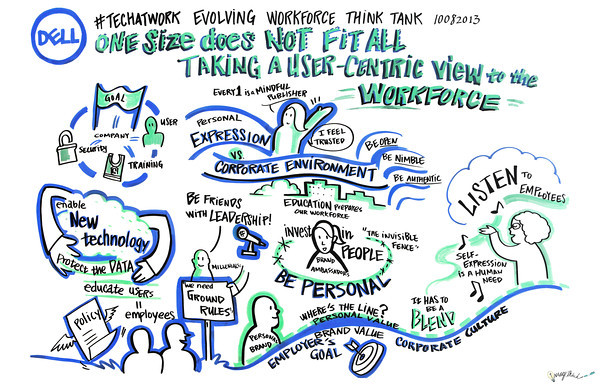 DELL
#TECHATWORK EVOLVING WORKFORCE THINK TANK 10082013
ONE Size does NOT Fit ALL
TAKING A USER-CENTRIC VIEW to the
WORKFORCE
GOAL
COMPANY
USER
SECURITY
TRAINING
EVERY1 is a MINDFUL
PUBLISHER
PERSONAL
EXPRESSION
VS.
CORPORATE ENVIRONMENT
I FEEL
TRUSTED
BE OPEN
BE NIMBLE
BE AUTHENTIC
enable
New
technology
Protect the DATA
educate users
= employees
POLICY
BE FRIENDS
WITH LEADERSHIP!
MILLENNIAL
we need
GROUND
RULES
EDUCATION PREPARES
OUR WORKFORCE
invest in
PEOPLE
BRAND
AMBASSADORS
"THE INVISIBLE
FENCE"
BE PERSONAL
LISTEN TO
EMPLOYEES
SELF-
EXPRESSION
IS A HUMAN
NEED
IT HAS TO
BE A
BLEND
PERSONAL
BRAND
WHERE'S THE LINE?
PERSONAL VALUE
BRAND VALUE
EMPLOYER'S
GOAL
CORPORATE CULTURE